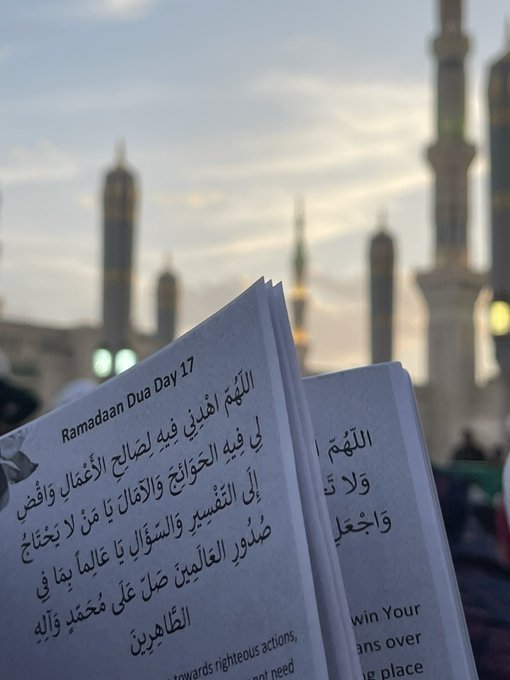 Ramadaan Dua Day 17
اللَّهُمَّ اهْدِنِي فِيهِ لِصَالِحِ الأَعْمَالِ وَاقْضِ
لِي فِيهِ الحَوَائِجَ وَالآمَالَ يَا مَنْ لا يَحْتَاجُ
إِلَى التَّفْسِيرِ وَالسُّؤَالِ يَا عَالِماً بِمَا فِي
صُدُورِ العَالَمِينَ صَلِّ عَلَى مُحَمَّدٍ وَآلِهِ
الطَّاهِرِينَ
towards righteous actions,
not need
اللَّهُمَّ
وَلا
وَاجْعَلْ
win Your
ans over
place